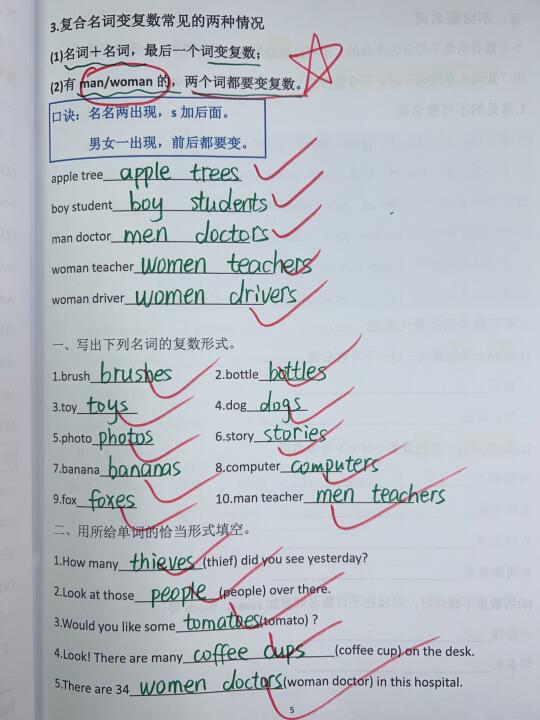 3.复合名词变复数常见的两种情况
(1)名词＋名词，最后一个词变复数；
(2)有 man/woman 的，两个词都要变复数。
口诀：名名两出现，s 加后面。
男女一出现，前后都要变。
apple tree apple trees
boy student boy students
man doctor men doctors
woman teacher women teachers
woman driver women drivers
一、写出下列名词的复数形式。
1.brush brushes 2.bottle bottles
3.toy toys 4.dog dogs
5.photo photos 6.story stories
7.banana bananas 8.computer computers
9.fox foxes 10.man teacher men teachers
二、用所给单词的恰当形式填空。
1.How many thieves (thief) did you see yesterday?
2.Look at those people (people) over there.
3.Would you like some tomatoes (tomato) ?
4.Look! There are many coffee cups (coffee cup) on the desk.
5.There are 34 women doctors (woman doctor) in this hospital.
5